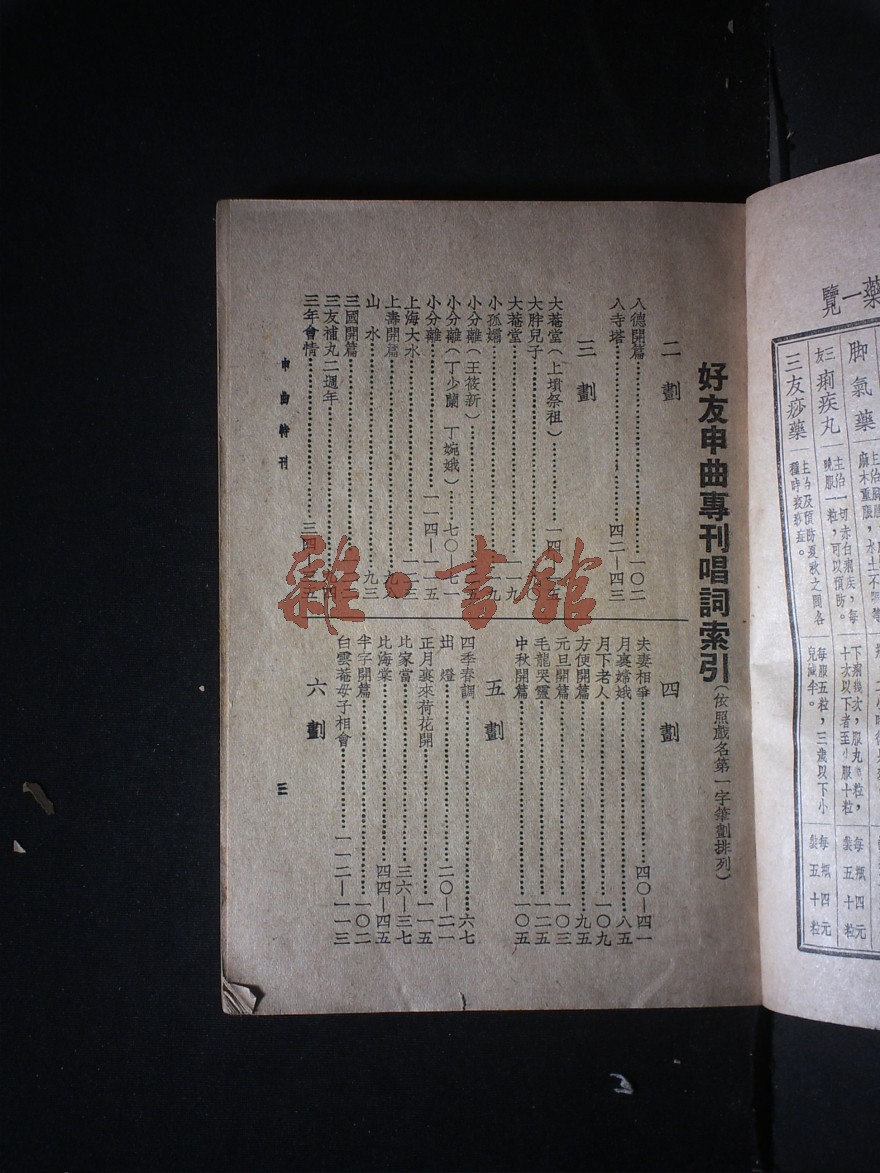 好友申曲專刊唱詞索引(依照戲名第一字筆劃排列)
二劃
八德開篇………一〇二
八寺塔………四二—四三
三劃
大菴堂(上墳祭祖)………一四
大胖兒子
大菴堂
小孤孀
小分離(王筱新)
小分離(丁少蘭 丁婉娥)………七〇—七一
小分離………一一四—一一五
上海大水
上壽開篇
山水………九三
三國開篇
三友補丸二週年
三年會情………三四
四劃
夫妻相爭………四〇—四一
月裏嫦娥………八五
月下老人………一〇九
方便開篇………九五
元旦開篇………一〇三
毛龍哭靈………一二五
中秋開篇………一〇五
五劃
四季春調………六七
出燈………二〇—二一
正月裏來荷花開………一一五
比家當………三六—三七
比海棠………四四—四五
半字開篇………一〇二
白雲菴母子相會………一一二—一一三
六劃
申曲特刊
三
雜·書館
藥一覽
脚氣藥
三友痢疾丸
主治一切赤白痢疾,每
曉服一粒,可以預防。
十次以下者至小服十粒
每瓶四元
裝五十粒
三友痧藥
主治及預防夏秋之間各
種時疫痧症。
每服五粒,三歲以下小
兒減半。
每瓶四元
裝五十粒